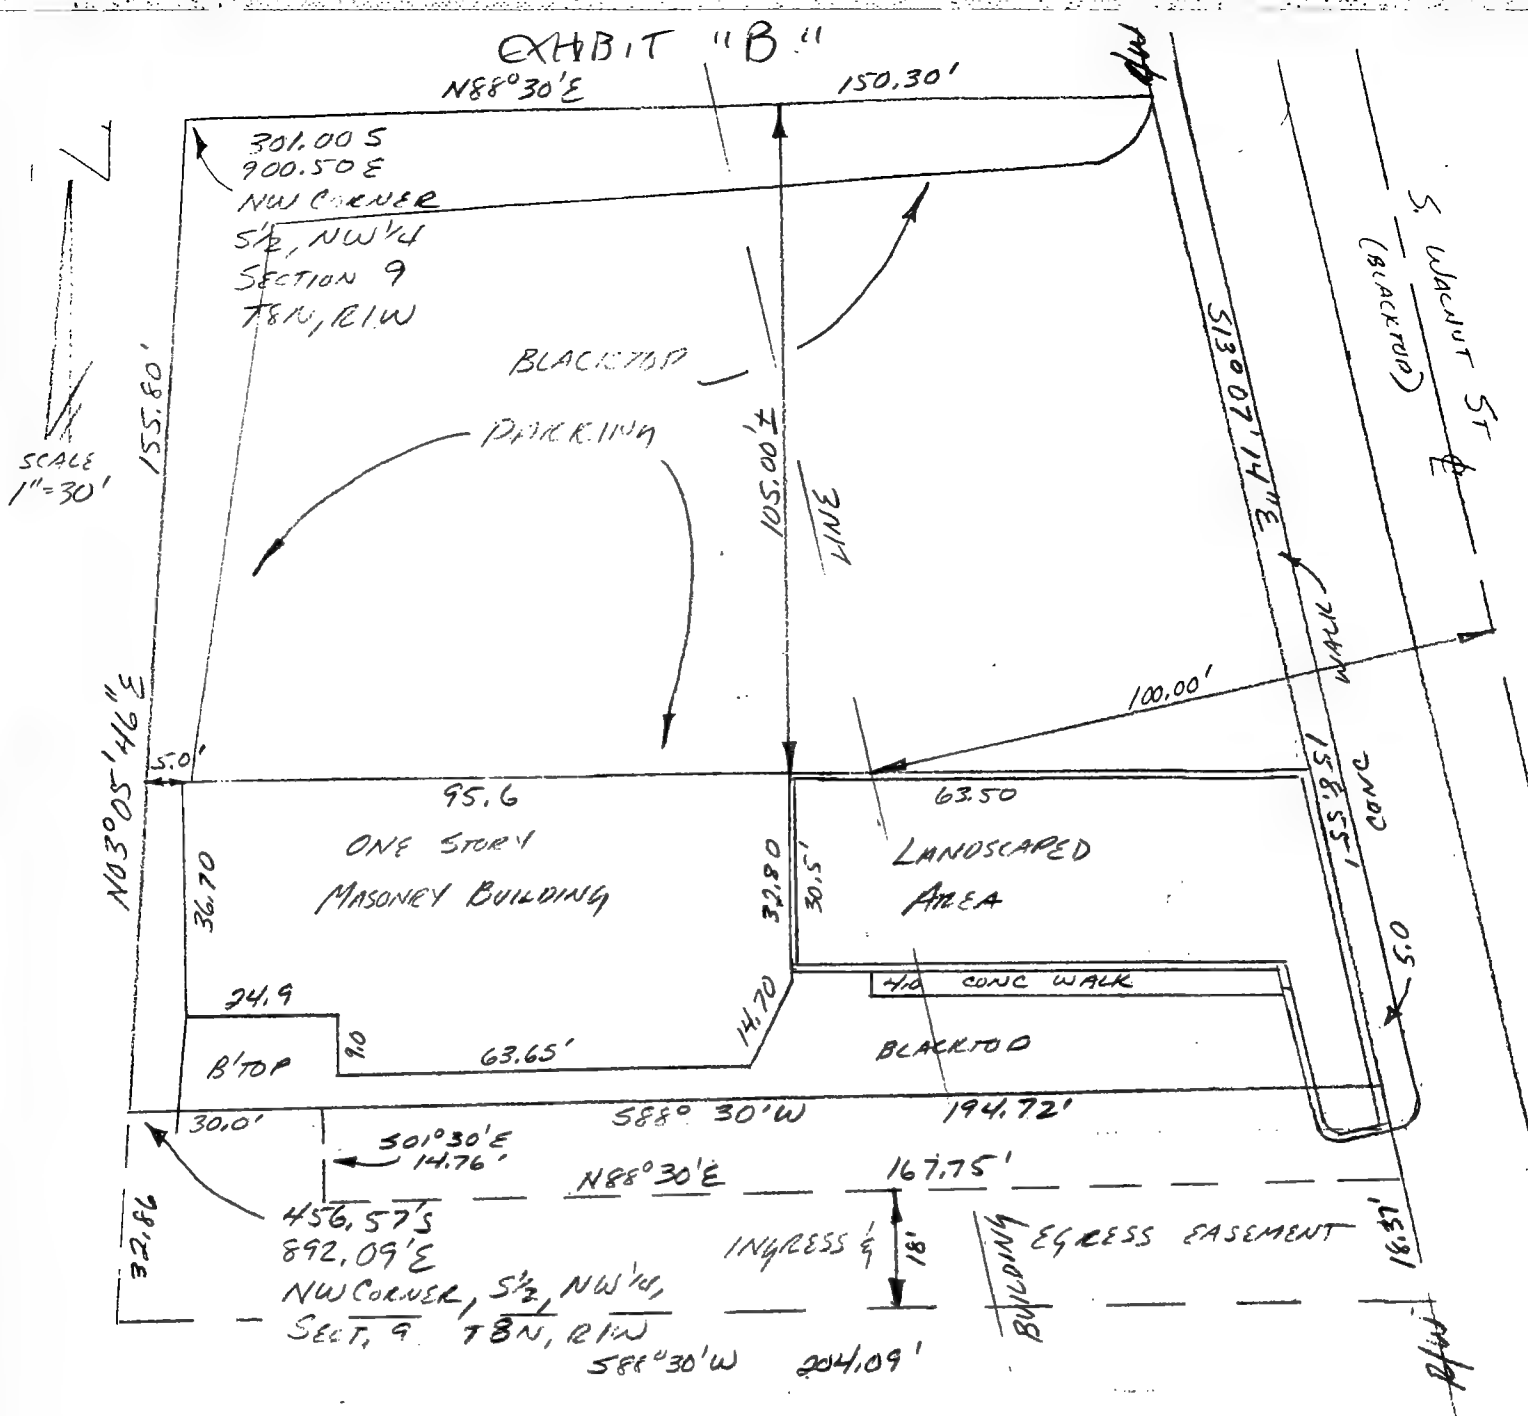 EXHIBIT "B"
N88°30'E
150.30'
R/W
301.00 S
900.50 E
NW CORNER
S½, NW¼
SECTION 9
T8N, R1W
S. WALNUT ST
(BLACKTOP)
℄
SCALE
1"=30'
155.80'
N03°05'46"E
BLACKTOP
PARKING
105.00'±
LINE
S13°07'14"E
158.55'
WALK
CONC
100.00'
5.0'
95.6
63.50
ONE STORY
MASONRY BUILDING
36.70
32.80
30.5'
LANDSCAPED
AREA
5.0
24.9
9.0
63.65'
14.70
4.0 CONC WALK
B'TOP
BLACKTOP
30.0'
S88° 30'W
194.72'
S01°30'E
14.76'
N88°30'E
167.75'
32.86
456.57'S
892.09'E
NW CORNER, S½, NW¼,
SECT. 9 T8N, R1W
INGRESS &
18'
BUILDING
EGRESS EASEMENT
18.37'
S88°30'W
204.09'
R/W